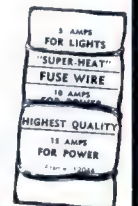 5 AMPS
FOR LIGHTS
"SUPER-HEAT"
FUSE WIRE
10 AMPS
FOR POWER
HIGHEST QUALITY
15 AMPS
FOR POWER